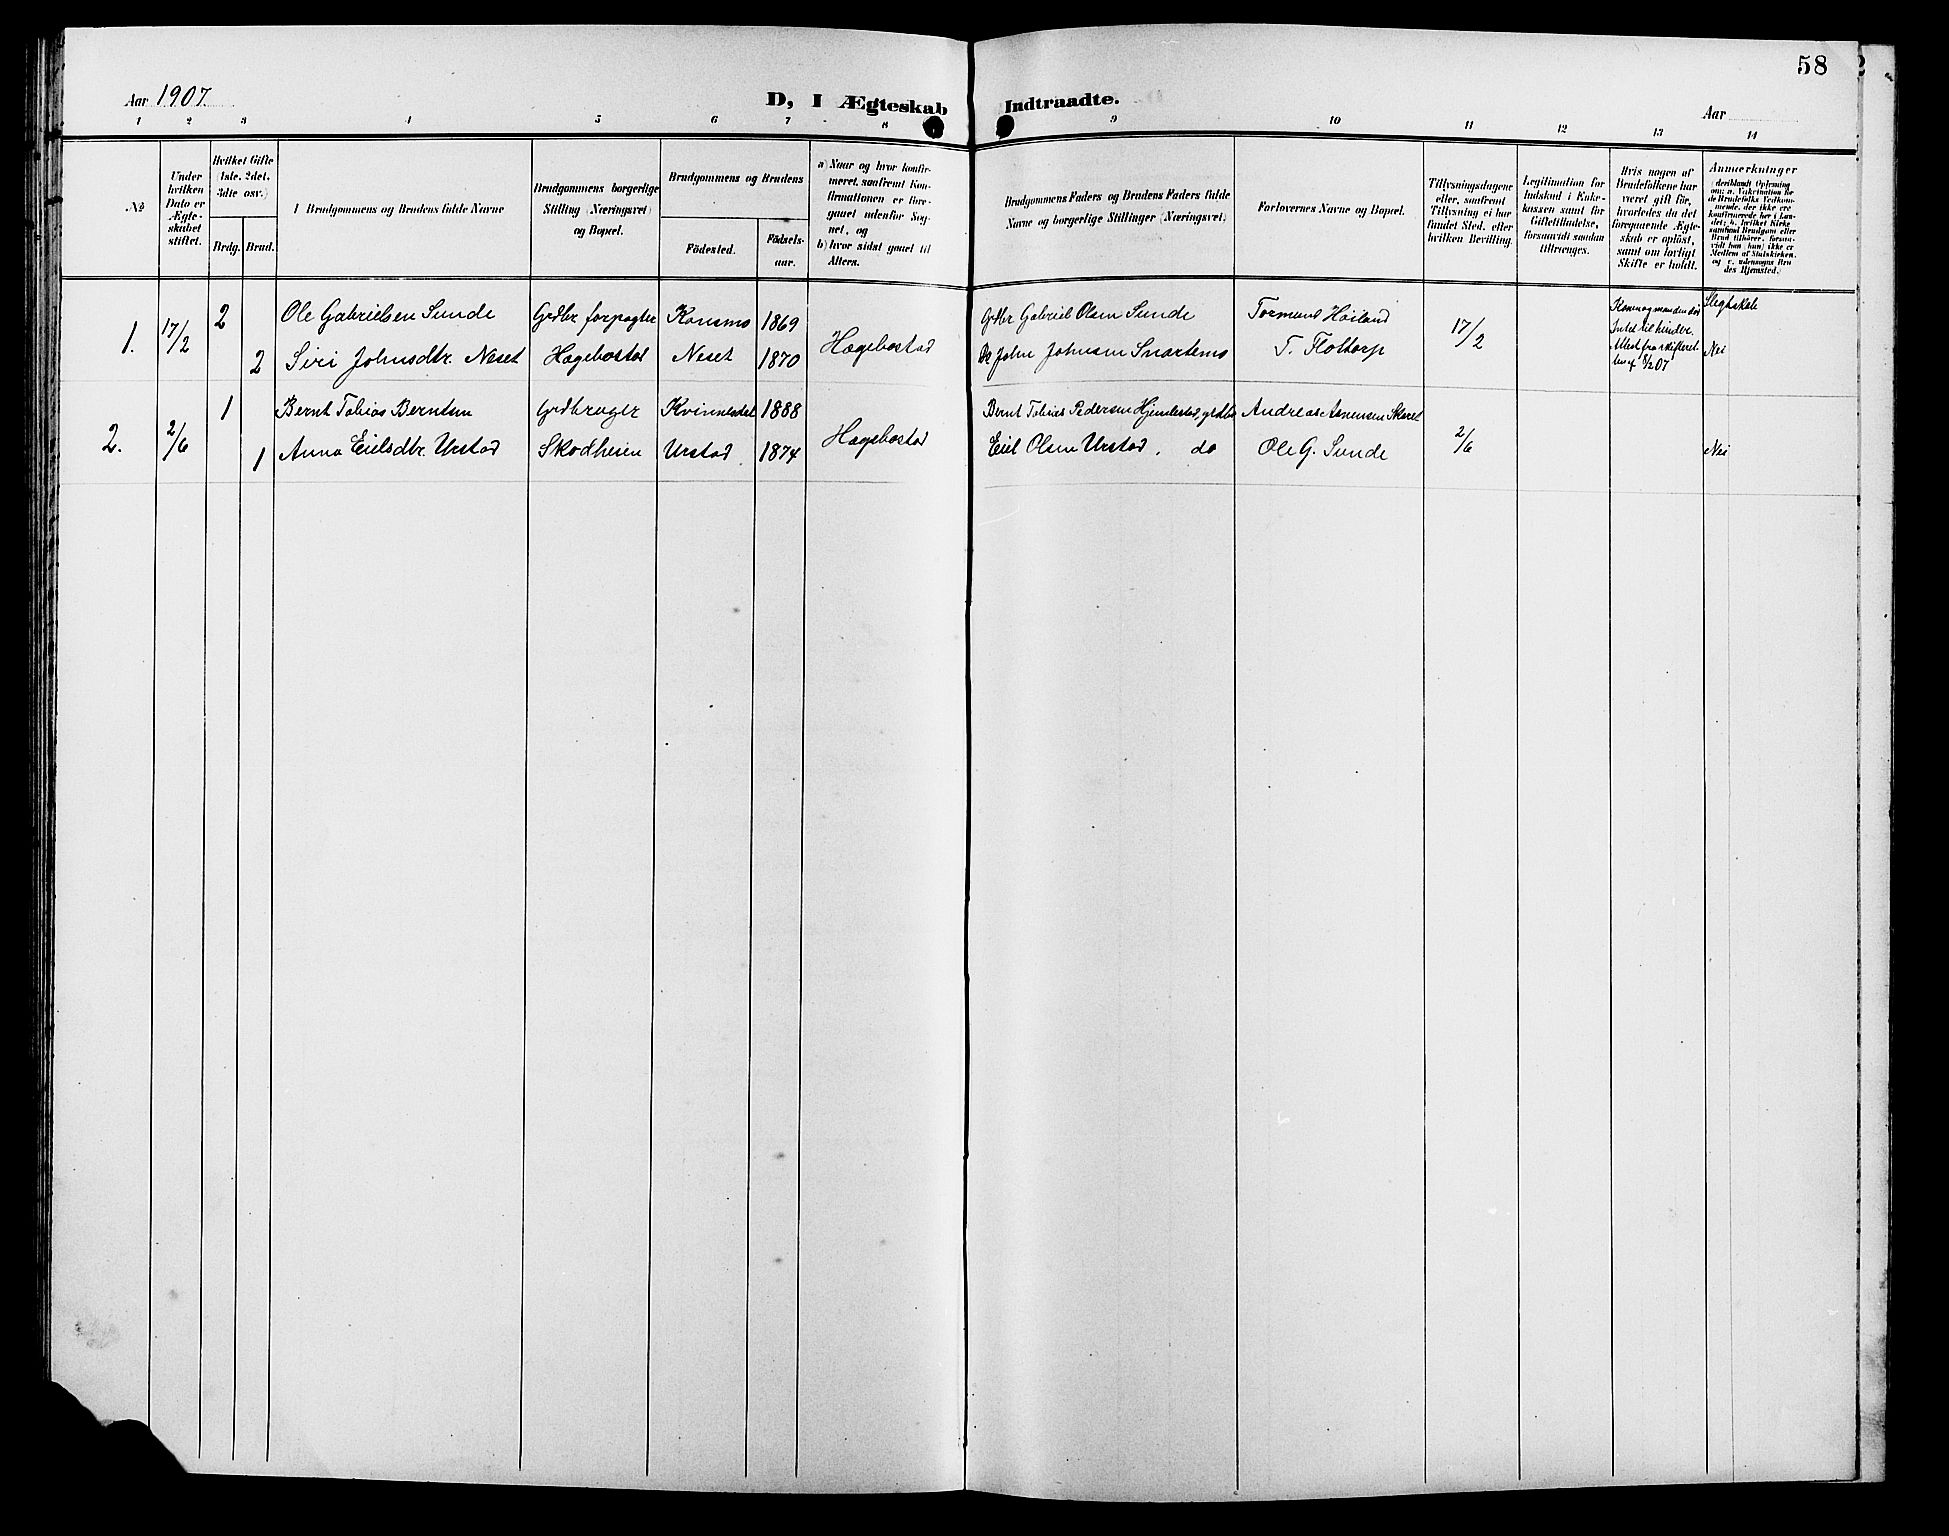 58
Aar 1907.
D, I Ægteskab Indtraadte.
Aar
1 2 3 4 5 6 7 8 9 10 11 12 13 14
No
Under hvilken Dato er Ægteskabet stiftet.
Hvilket Gifte (1ste, 2det, 3die osv.)
Brdg. Brud.
Brudgommens og Brudens fulde Navne
Brudgommens borgerlige Stilling (Næringsvei) og Bopæl.
Brudgommens og Brudens
Födested.
Födselsaar.
a) Naar og hvor konfirmeret, samfremt Konfirmationen er foregaaet udenfor Sognet, og
b) hvor sidst gaaet til Alters.
Brudgommens Faders og Brudens Faders fulde Navne og borgerlige Stillinger (Næringsvei.)
Forlovernes Navne og Bopæl.
Tillysningsdagene eller, saafremt Tillysning ei har fundet Sted, efter hvilken Bevilling.
Legitimation for Indskud i Enkekassen samt for Giftetilladelse, forsaavidt saadan tiltrænges.
Hvis nogen af Brudefolkene har været gift för, hvorledes da det foregaaende Ægteskab er oplöst, samt om lovligt Skifte er holdt.
Anmærkninger
1. 17/2 2 Ole Gabrielsen Sunde Grdbr forpagter Konsmo 1869 Hægebostad Grdbr Gabriel Olsen Sunde Tormund Høiland 17/2 Slegtskab
2 Siri Johnsdtr. Neset Hægebostad Neset 1870 Do John Johnsen Snartemo T. Flottorp Nei
Intet til hinder.
Attest fra skifteretten
2. 2/6 1 Bernt Tobias Berntsen Grdbruger Kvinnesdal 1888 Hægebostad Bernt Tobias Pedersen Hjemlestad, grdbr Andreas Asmensen Skaret 2/6
1 Anna Eielsdtr. Urstad Skodheien Urstad 1874 Eiel Olsen Urstad, do Ole G. Sunde Nei